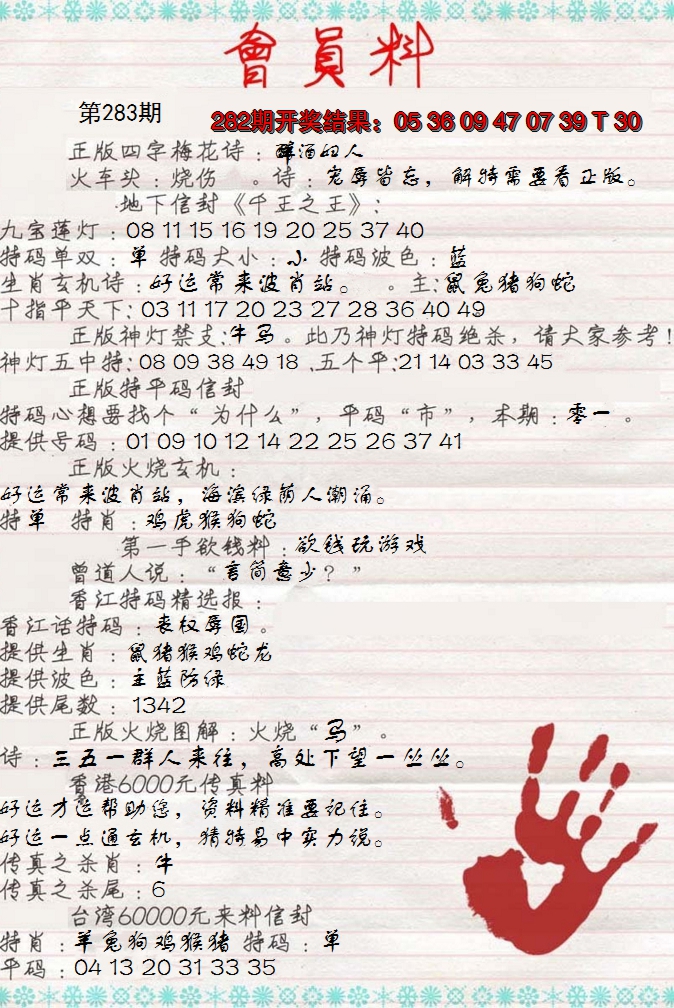 會員料
第283期
282期开奖结果：05 36 09 47 07 39 T 30
正版四字梅花诗：醉酒妇人
火车头：烧伤 。诗：宠辱皆忘，解特需要看正版。
地下信封《千王之王》：
九宝莲灯：08 11 15 16 19 20 25 37 40
特码单双：单 特码大小：小 特码波色：蓝
生肖玄机诗：好运常来波肖站。 。主：鼠兔猪狗蛇
十指平天下：03 11 17 20 23 27 28 36 40 49
正版神灯禁支：牛马。此乃神灯特码绝杀，请大家参考！
神灯五中特：08 09 38 49 18 .五个平：21 14 03 33 45
正版特平码信封
特码心想要找个“为什么”，平码“市”，本期：零一。
提供号码：01 09 10 12 14 22 25 26 37 41
正版火烧玄机：
好运常来波肖站，海滨绿荫人潮涌。
特单 特肖：鸡虎猴狗蛇
第一手欲钱料：欲钱玩游戏
曾道人说：“言简意少？”
香江特码精选报：
香江话特码：丧权辱国。
提供生肖：鼠猪猴鸡蛇龙
提供波色：主蓝防绿
提供尾数：1342
正版火烧图解：火烧“马”。
诗：三五一群人来往，高处下望一丛丛。
香港6000元传真料
好运才运帮助您，资料精准要记住。
好运一点通玄机，猜特易中实力说。
传真之杀肖：牛
传真之杀尾：6
台湾60000元来料信封
特肖：羊兔狗鸡猴猪 特码：单
平码：04 13 20 31 33 35